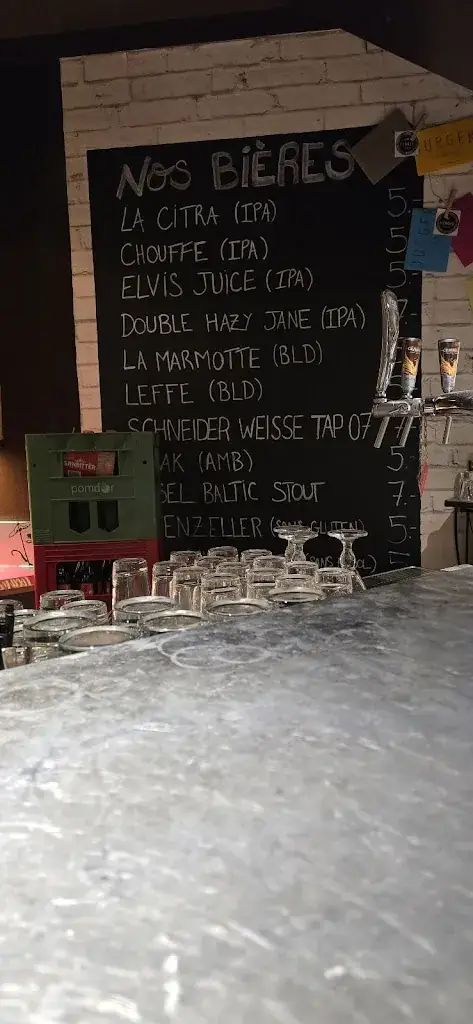 NOS BIÈRES
LA CITRA (IPA) 5.-
CHOUFFE (IPA) 5.-
ELVIS JUICE (IPA) 5.-
DOUBLE HAZY JANE (IPA) 7.-
LA MARMOTTE (BLD)
LEFFE (BLD)
SCHNEIDER WEISSE TAP 07 7.-
AK (AMB) 5.-
SEL BALTIC STOUT 7.-
ENZELLER (SANS GLUTEN) 5.-
pomdor